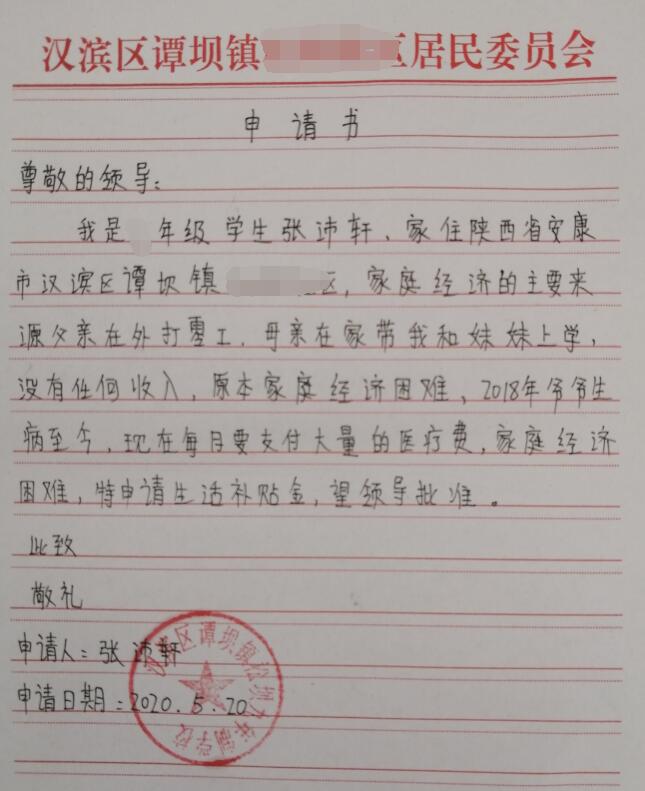 汉滨区谭坝镇 区居民委员会
申请书
尊敬的领导：
我是 年级学生张沛轩、家住陕西省安康
市汉滨区谭坝镇 区，家庭经济的主要来
源父亲在外打零工，母亲在家带我和妹妹上学，
没有任何收入，原本家庭经济困难，2018年爷爷生
病至今，现在每月要支付大量的医疗费，家庭经济
困难，特申请生活补贴金，望领导批准。
此致
敬礼
申请人：张沛轩
申请日期：2020.5.20
汉滨区谭坝镇松坝九年制学校